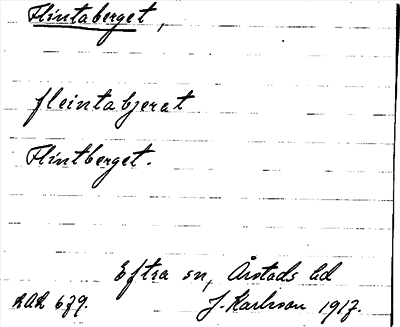 Flintaberget,
fleintabjerat
Flintberget.
Eftra sn, Årstads hd
RAÄ 679. J. Karlsson 1917.